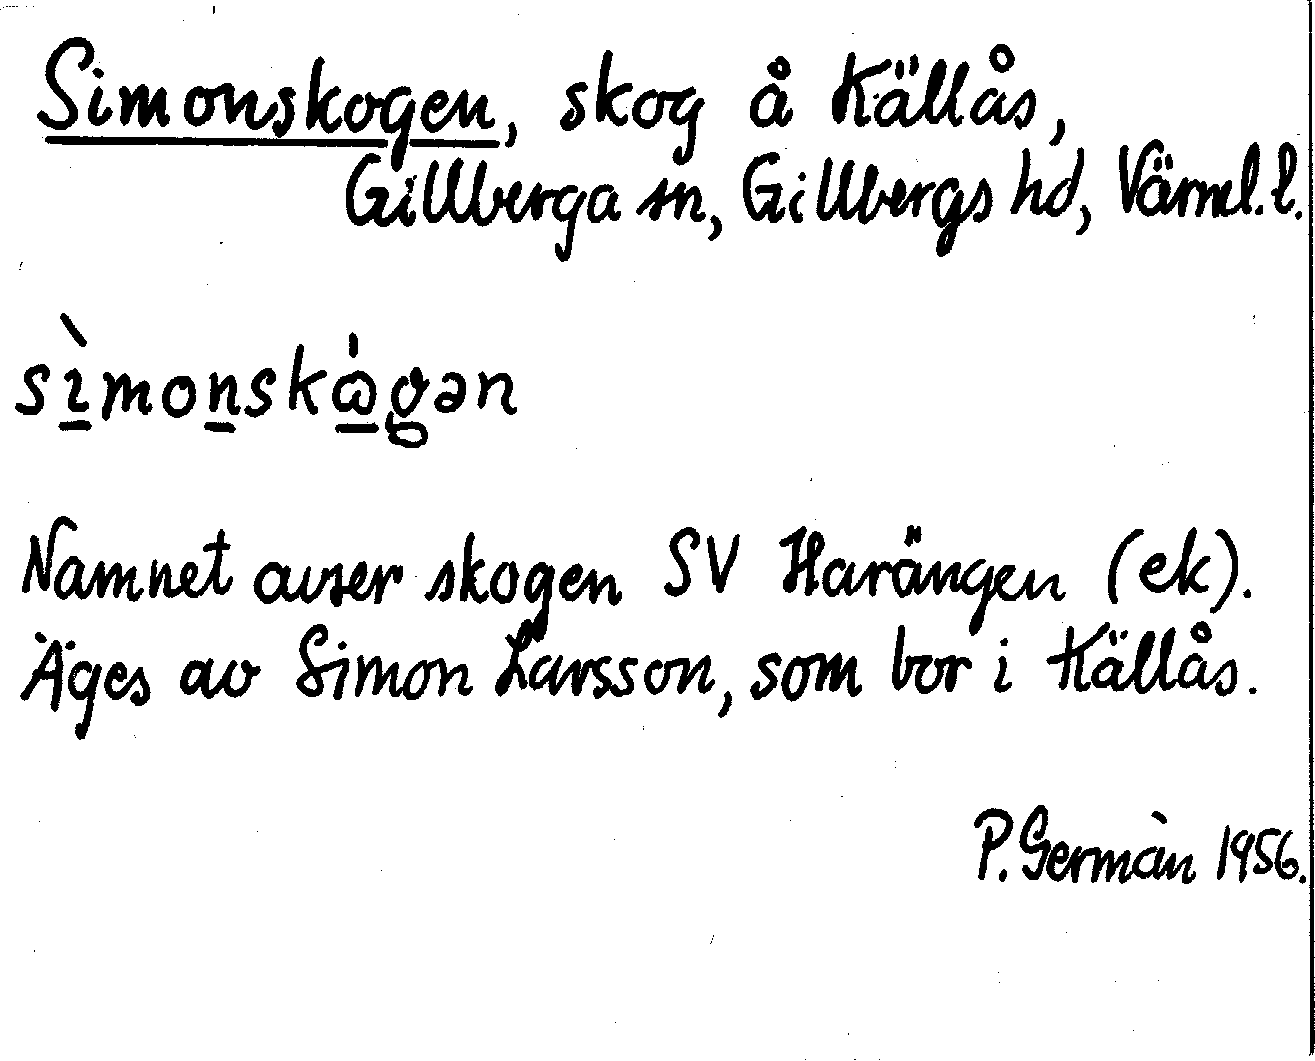 Simonskogen, skog å Källås,
Gillberga sn, Gillbergs hd, Värml. l.
sìmonskω̍gən
Namnet avser skogen SV Harängen (ek).
Äges av Simon Larsson, som bor i Källås.
P. Germàn 1956.